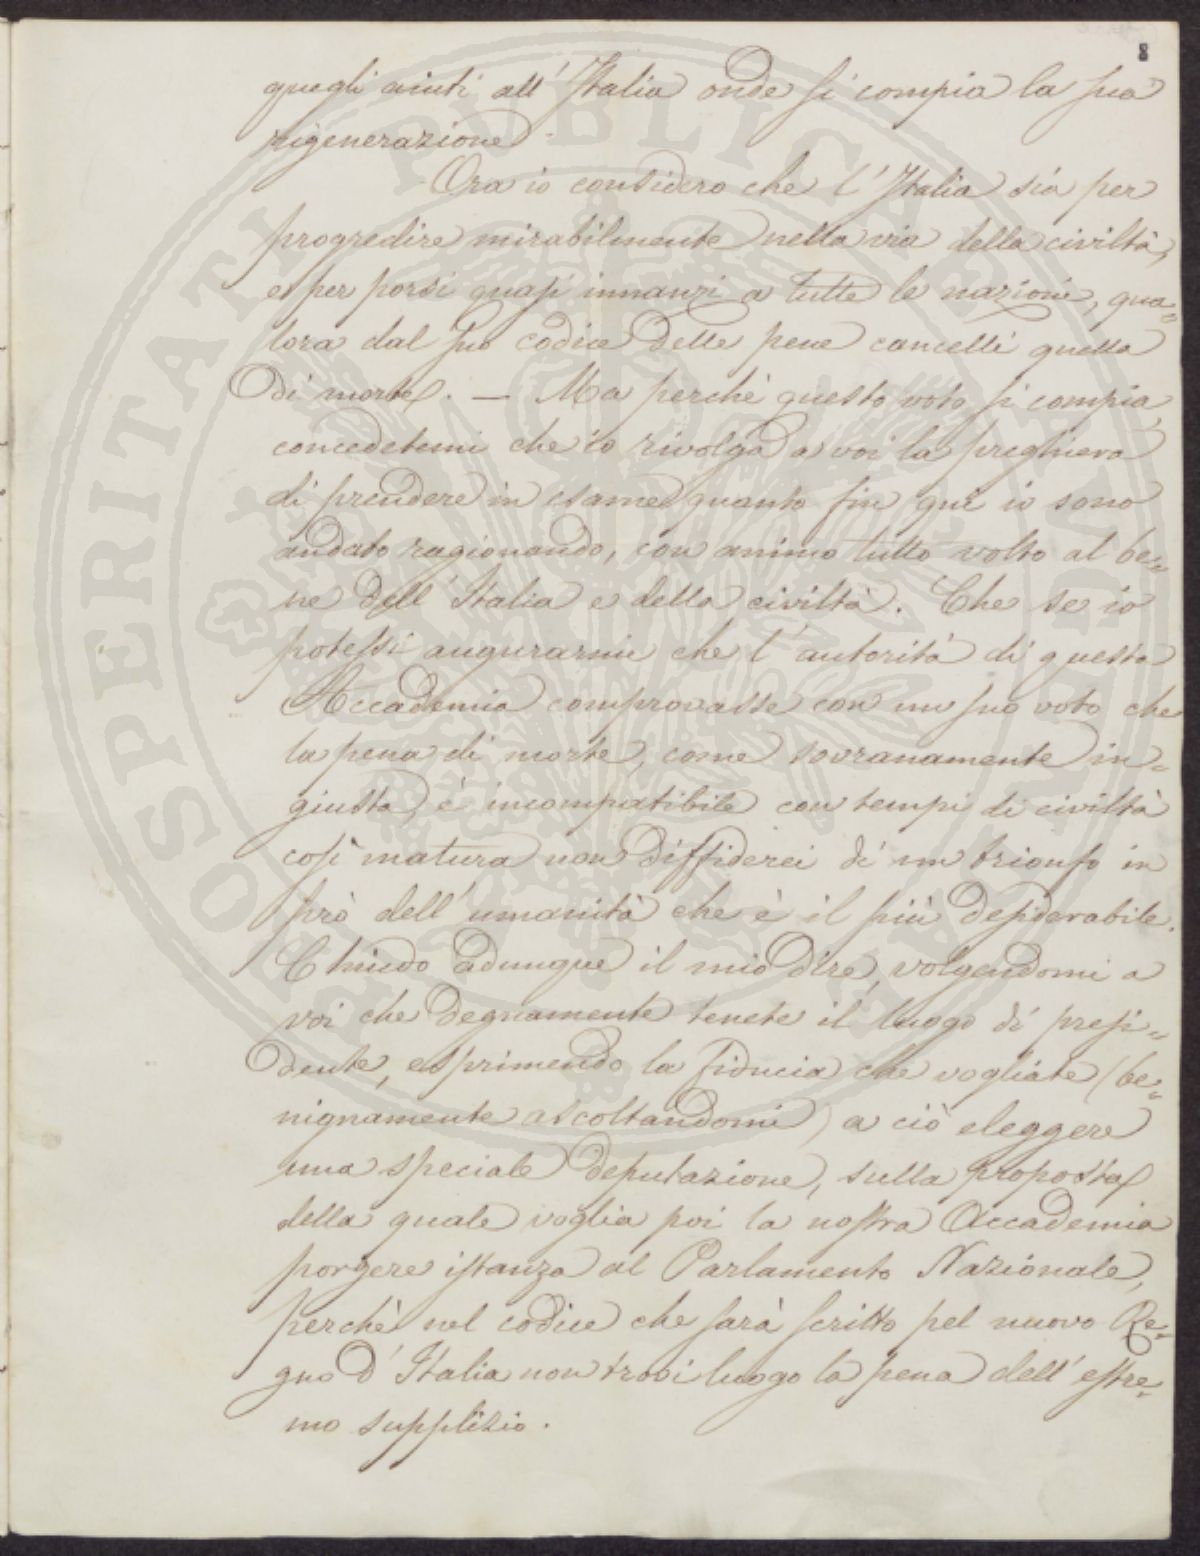 8
quegli aiuti all'Italia onde si compia la sua
rigenerazione.
Ora io considero che l'Italia sia per
progredire mirabilmente nella via della civiltà,
e per porsi quasi innanzi a tutte le nazioni, qua=
lora dal suo codice delle pene cancelli quella
di morte. — Ma perchè questo voto si compia,
concedetemi che io rivolga a voi la preghiera
di prendere in esame quanto fin qui io sono
andato ragionando, con animo tutto volto al be=
ne dell'Italia e della civiltà. Che se io
potessi augurarmi che l'autorità di questa
Accademia comprovasse con un suo voto che
la pena di morte, come sovranamente in=
giusta, è incompatibile con tempi di civiltà
così matura non diffiderei di un trionfo in
prò dell'umanità che è il più desiderabile.
Chiudo adunque il mio dire, volgendomi a
voi che degnamente tenete il luogo di presi=
dente, esprimendo la fiducia che vogliate (be=
nignamente ascoltandomi) a ciò eleggere
una speciale deputazione, sulla proposta
della quale voglia poi la nostra Accademia
porgere istanza al Parlamento Nazionale,
perchè nel codice che sarà scritto pel nuovo Re=
gno d'Italia non trovi luogo la pena dell'estre=
mo supplizio.
PROSPERITATI PUBLICAE AUGENDAE